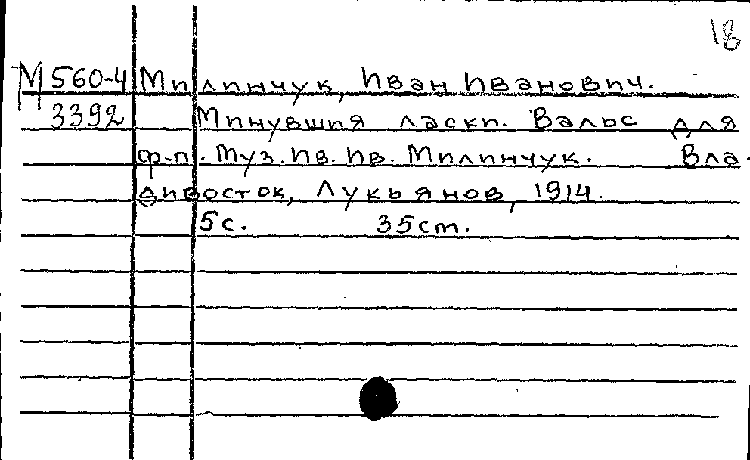 18
М 560-4 Милинчук, Иван Иванович.
3392 Минувшия ласки. Вальс для
ф-п. Муз. Ив. Ив. Милинчук. Вла-
дивосток, Лукьянов, 1914.
5с. 35cm.